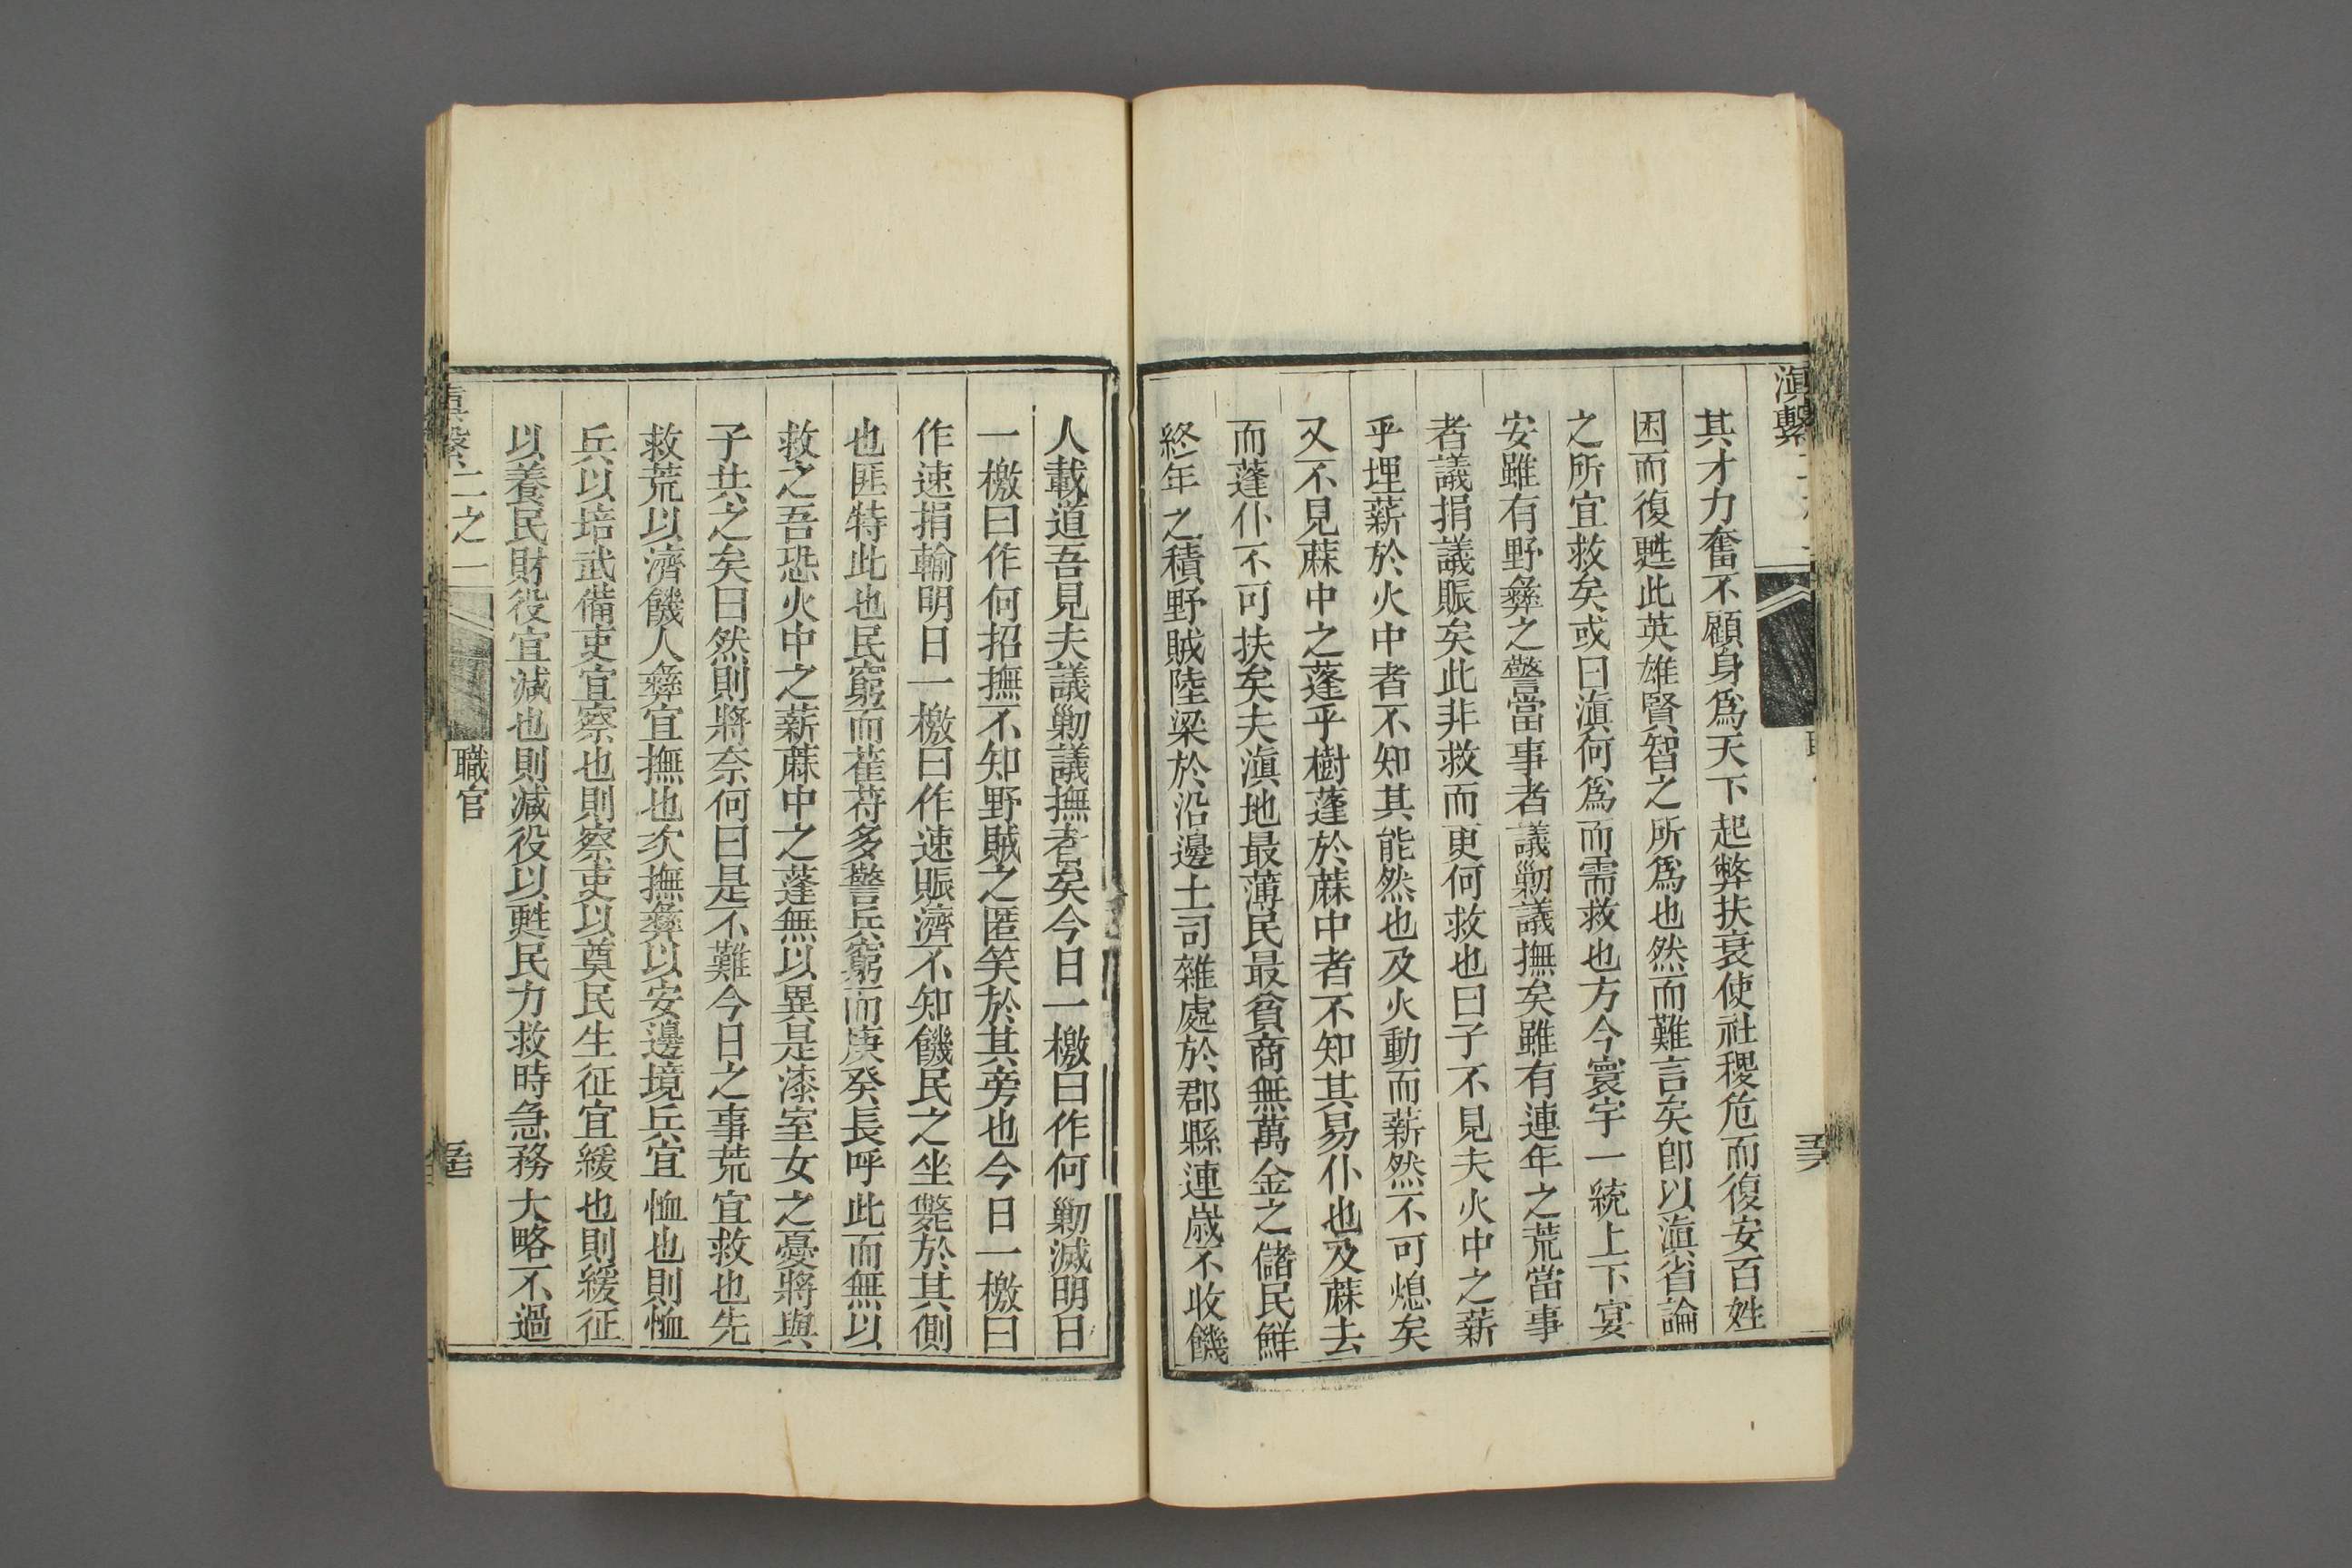 滇繫
其才力奮不顧身爲天下起弊扶衰使社稷危而復安百姓
困而復甦此英雄賢智之所爲也然而難言矣卽以滇省論
之所宜救矣或曰滇何爲而需救也方今寰宇一統上下宴
安雖有野彝之警當事者議勦議撫矣雖有連年之荒當事
者議捐議賑矣此非救而更何救也曰子不見夫火中之薪
乎埋薪於火中者不知其能然也及火動而薪然不可熄矣
又不見蔴中之蓬乎樹蓬於蔴中者不知其易仆也及蔴去
而蓬仆不可扶矣夫滇地最薄民最貧商無萬金之儲民鮮
終年之積野賊陸梁於沿邊土司雜處於郡縣連歲不收饑
五六
人載道吾見夫議勦議撫者矣今日一檄曰作何勦滅明日
一檄曰作何招撫不知野賊之匿笑於其旁也今日一檄曰
作速捐輸明日一檄曰作速賑濟不知饑民之坐斃於其側
也匪特此也民窮而萑苻多警兵窮而庚癸長呼此而無以
救之吾恐火中之薪蔴中之蓬無以異是漆室女之憂將與
子共之矣曰然則將奈何曰是不難今日之事荒宜救也先
救荒以濟饑人彝宜撫也次撫彝以安邊境兵宜恤也則恤
兵以培武備吏宜察也則察吏以奠民生征宜緩也則緩征
以養民財役宜減也則減役以甦民力救時急務大略不過
二之一 職官 五七